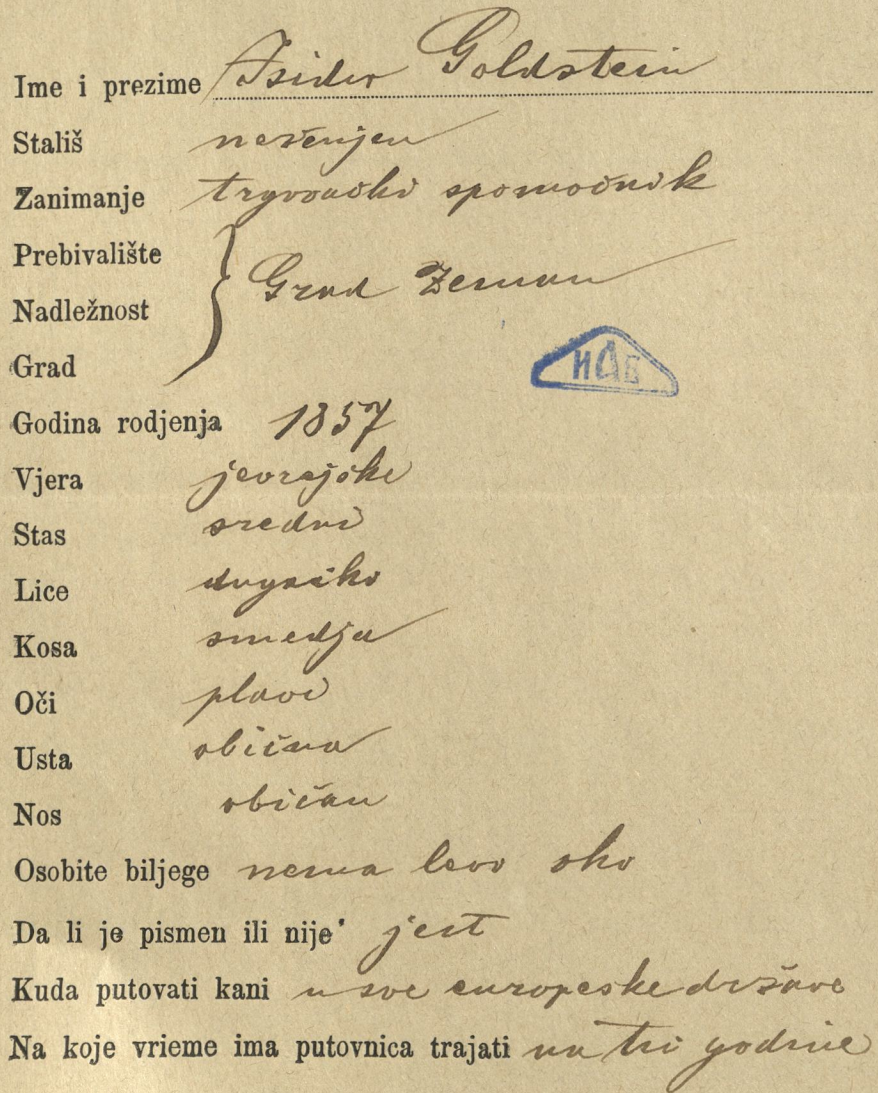 Ime i prezime Isidor Goldstein
Stališ neženjen
Zanimanje trgovački spomoćnik
Prebivalište
Nadležnost } Grad Zemun
Grad
ИАБ
Godina rodjenja 1857
Vjera jevrejske
Stas srednji
Lice dugačko
Kosa smedja
Oči plavi
Usta obična
Nos običan
Osobite biljege nema levo oko
Da li je pismen ili nije jest
Kuda putovati kani u sve europeske države
Na koje vrieme ima putovnica trajati na tri godine